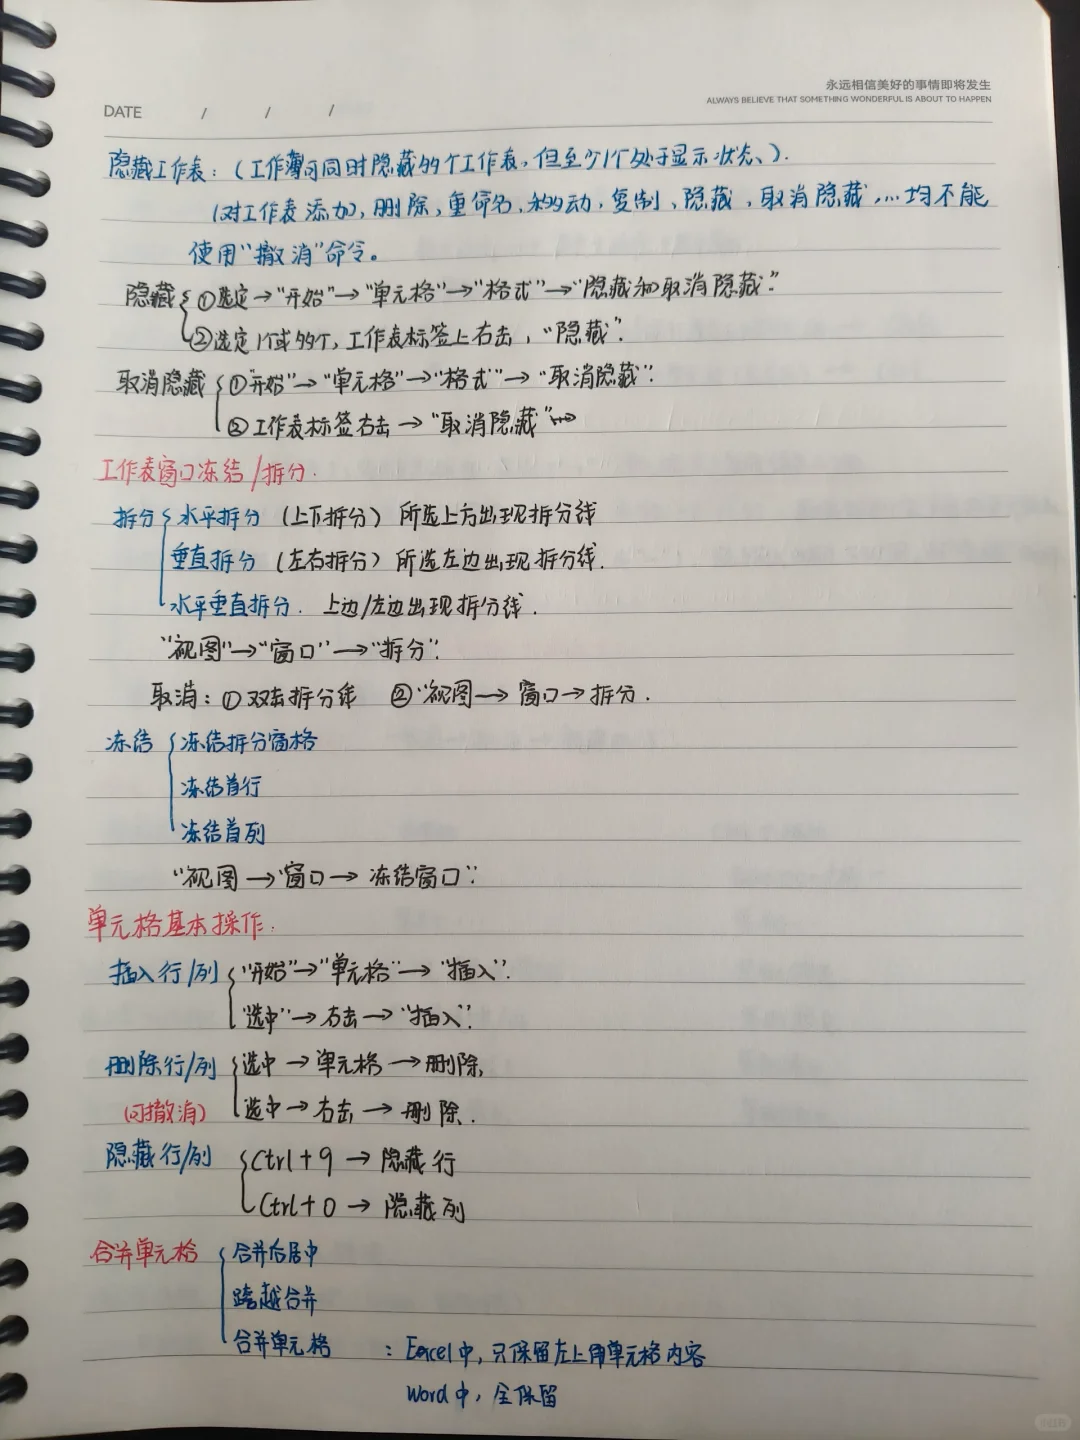 永远相信美好的事情即将发生
DATE / / /
ALWAYS BELIEVE THAT SOMETHING WONDERFUL IS ABOUT TO HAPPEN
隐藏工作表：（工作薄可同时隐藏多个工作表，但至少1个处于显示状态、）.
(对工作表添加，删除，重命名、移动、复制、隐藏，取消隐藏，…均不能
使用“撤消”命令。
隐藏 ①选定→“开始”→“单元格”→“格式”→“隐藏和取消隐藏”
②选定1个或多个，工作表标签上右击，“隐藏”.
取消隐藏 ①“开始”→“单元格”→“格式”→“取消隐藏”.
②工作表标签右击→“取消隐藏”
工作表窗口冻结/拆分.
拆分 水平拆分（上下拆分）所选上方出现拆分线
垂直拆分（左右拆分）所选左边出现拆分线.
水平垂直拆分. 上边/左边出现拆分线.
“视图”→“窗口”→“拆分”.
取消：①双击拆分线 ②“视图→窗口→拆分.
冻结 冻结拆分窗格
冻结首行
冻结首列
“视图→窗口→冻结窗口”.
单元格基本操作.
插入行/列 “开始”→“单元格”→“插入”.
“选中”→右击→“插入”.
删除行/列 选中→单元格→删除,
（可撤消） 选中→右击→删除.
隐藏行/列 Ctrl+9→隐藏行
Ctrl+0→隐藏列
合并单元格 合并后居中
跨越合并
合并单元格 ：Excel中，只保留左上角单元格内容
Word中，全保留